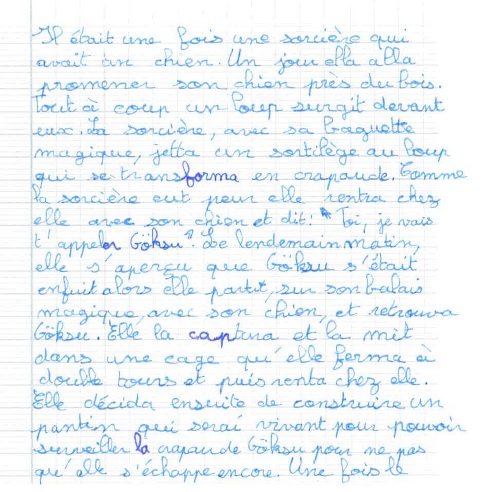 Il était une fois une sorcière qui
avait un chien. Un jour ella alla
promener son chien près du bois.
Tout à coup un loup surgit devant
eux. La sorcière, avec sa baguette
magique, jetta un sortilège au loup
qui se transforma en crapaude. Comme
la sorcière eut peur elle rentra chez
elle avec son chien et dit: " Toi, je vais
t'appeler Göksu". Le lendemain matin,
elle s'aperçu que Göksu s'était
enfuit alors elle partit, sur son balais
magique, avec son chien, et retrouva
Göksu. Elle la captura et la mit
dans une cage qu'elle ferma à
double tours et puis renta chez elle.
Elle décida ensuite de construire un
pantin qui serai vivant pour pouvoir
surveiller la crapaude Göksu pour ne pas
qu'elle s'échappe encore. Une fois le